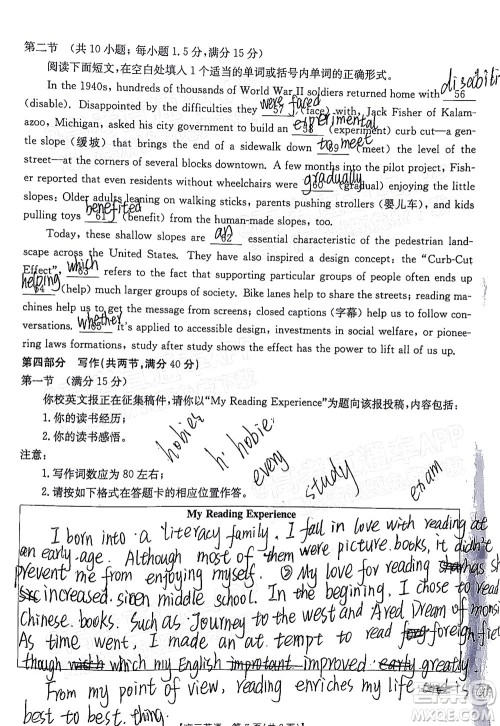 第二节 (共10小题;每小题1.5分,满分15分)
阅读下面短文,在空白处填入1个适当的单词或括号内单词的正确形式。
In the 1940s, hundreds of thousands of World War II soldiers returned home with 56 disabiliti
(disable). Disappointed by the difficulties they 57 were faced (face) with, Jack Fisher of Kalam-
azoo, Michigan, asked his city government to build an 58 experimental (experiment) curb cut—a gen-
tle slope (缓坡) that brings the end of a sidewalk down 59 to meet (meet) the level of the
street—at the corners of several blocks downtown. A few months into the pilot project, Fish-
er reported that even residents without wheelchairs were 60 gradually (gradual) enjoying the little
slopes; Older adults leaning on walking sticks, parents pushing strollers (婴儿车), and kids
pulling toys 61 benefited (benefit) from the human-made slopes, too.
Today, these shallow slopes are 62 an essential characteristic of the pedestrian land-
scape across the United States. They have also inspired a design concept; the "Curb-Cut
Effect", 63 which refers to the fact that supporting particular groups of people often ends up
64 helping (help) much larger groups of society. Bike lanes help to share the streets; reading ma-
chines help us get the message from screens; closed captions (字幕) help us follow the con-
versations. 65 Whether it's applied to accessible design, investments in social welfare, or pioneer-
ing laws formations, study after study shows the effect has the power to lift all of us up.
第四部分 写作(共两节,满分40分)
第一节 (满分15分)
你校英文报正在征集稿件,请你以"My Reading Experience"为题向该报投稿,内容包括:
1. 你的读书经历;
2. 你的读书感悟。
注意:
1. 写作词数应为80左右;
2. 请按如下格式在答题卡的相应位置作答。
hobies
hi hobie
every
study
exam
My Reading Experience
I born into a literacy family. I fall in love with reading at
an early age. Although most of them were picture books, it didn't
prevent me from enjoying myself. My love for reading has
increased siren middle school. In the begining, I chose to read
Chinese books. Such as Journey to the west and A red Dream of
As time went, I made an at tempt to read foreign
though my English improved greatly.
From my point of view, reading enriches my life
best to best thing.